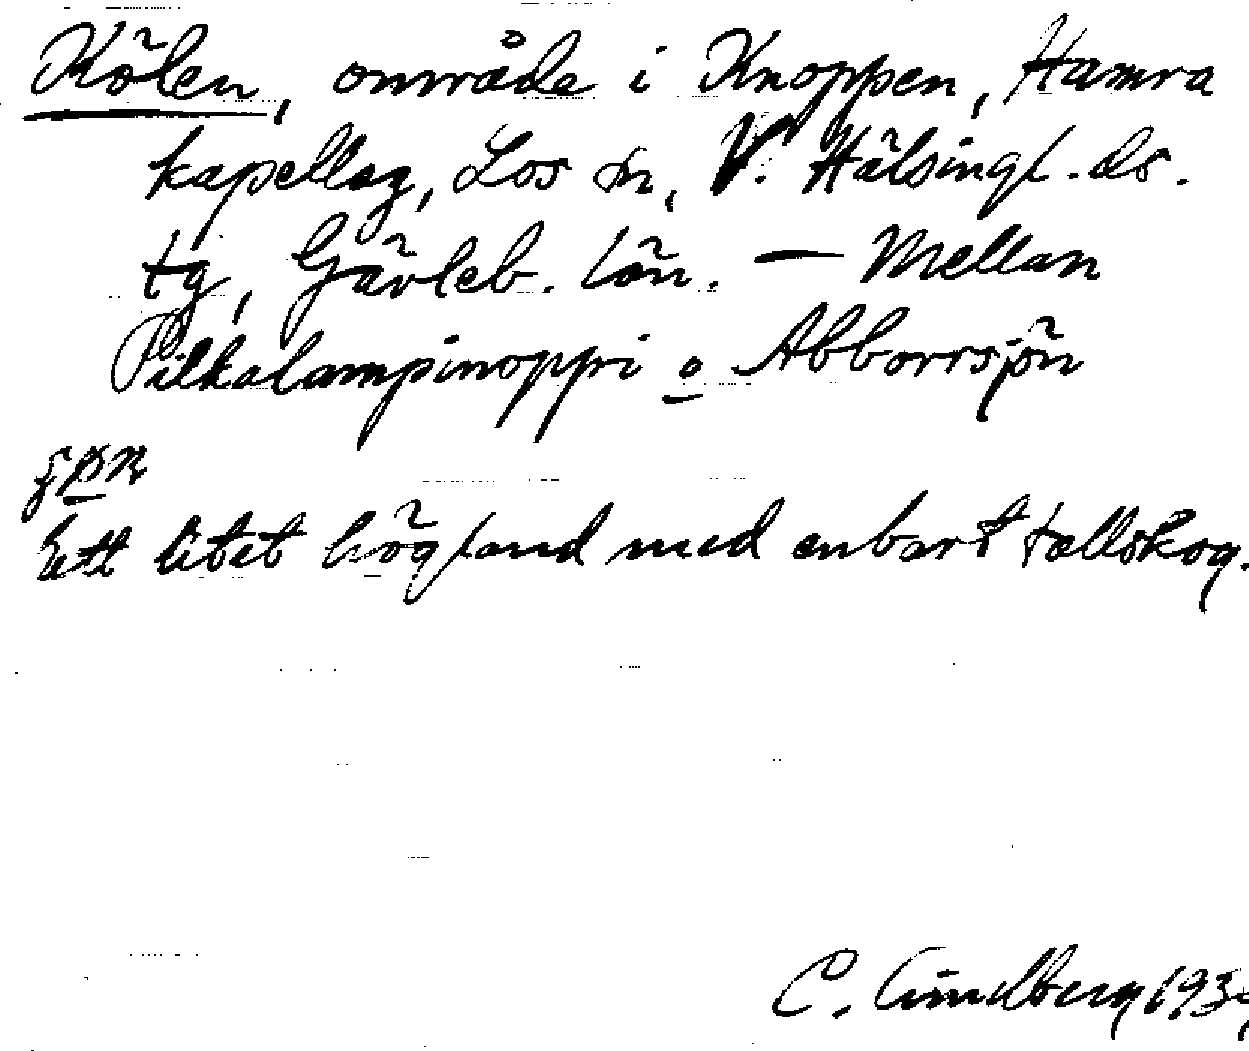 Kölen, område i Knoppen, Hamra
kapellag, Los sn, V. Hälsingl. ds.
tg, Gävleb. län. — Mellan
Pilkalampinoppi o Abborrsjön
Ett litet högland med enbart tallskog.
C. Lindberg